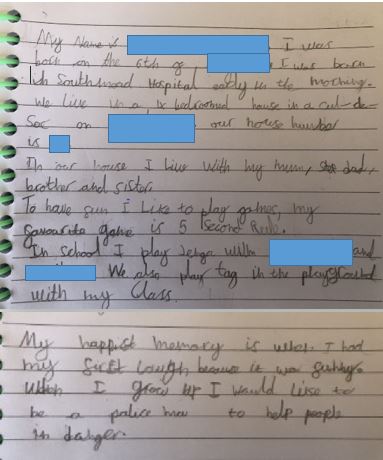 My Name is I was
born on the 6th of I was born
in Southmead Hospital early in the morning.
We live in a bedroomed house in a cul-de-
Sac on our house number
is
In our house I live with my mum, dad,
brother and sister.
To have fun I Like to play games, my
favourite game is 5 Second Rule.
In School I play Jenga with and
We also play tag in the playground
with my Class.
My happist memory is when I had
my first laugh because it was
When I grow up I would like to
be a police man to help people
in danger.